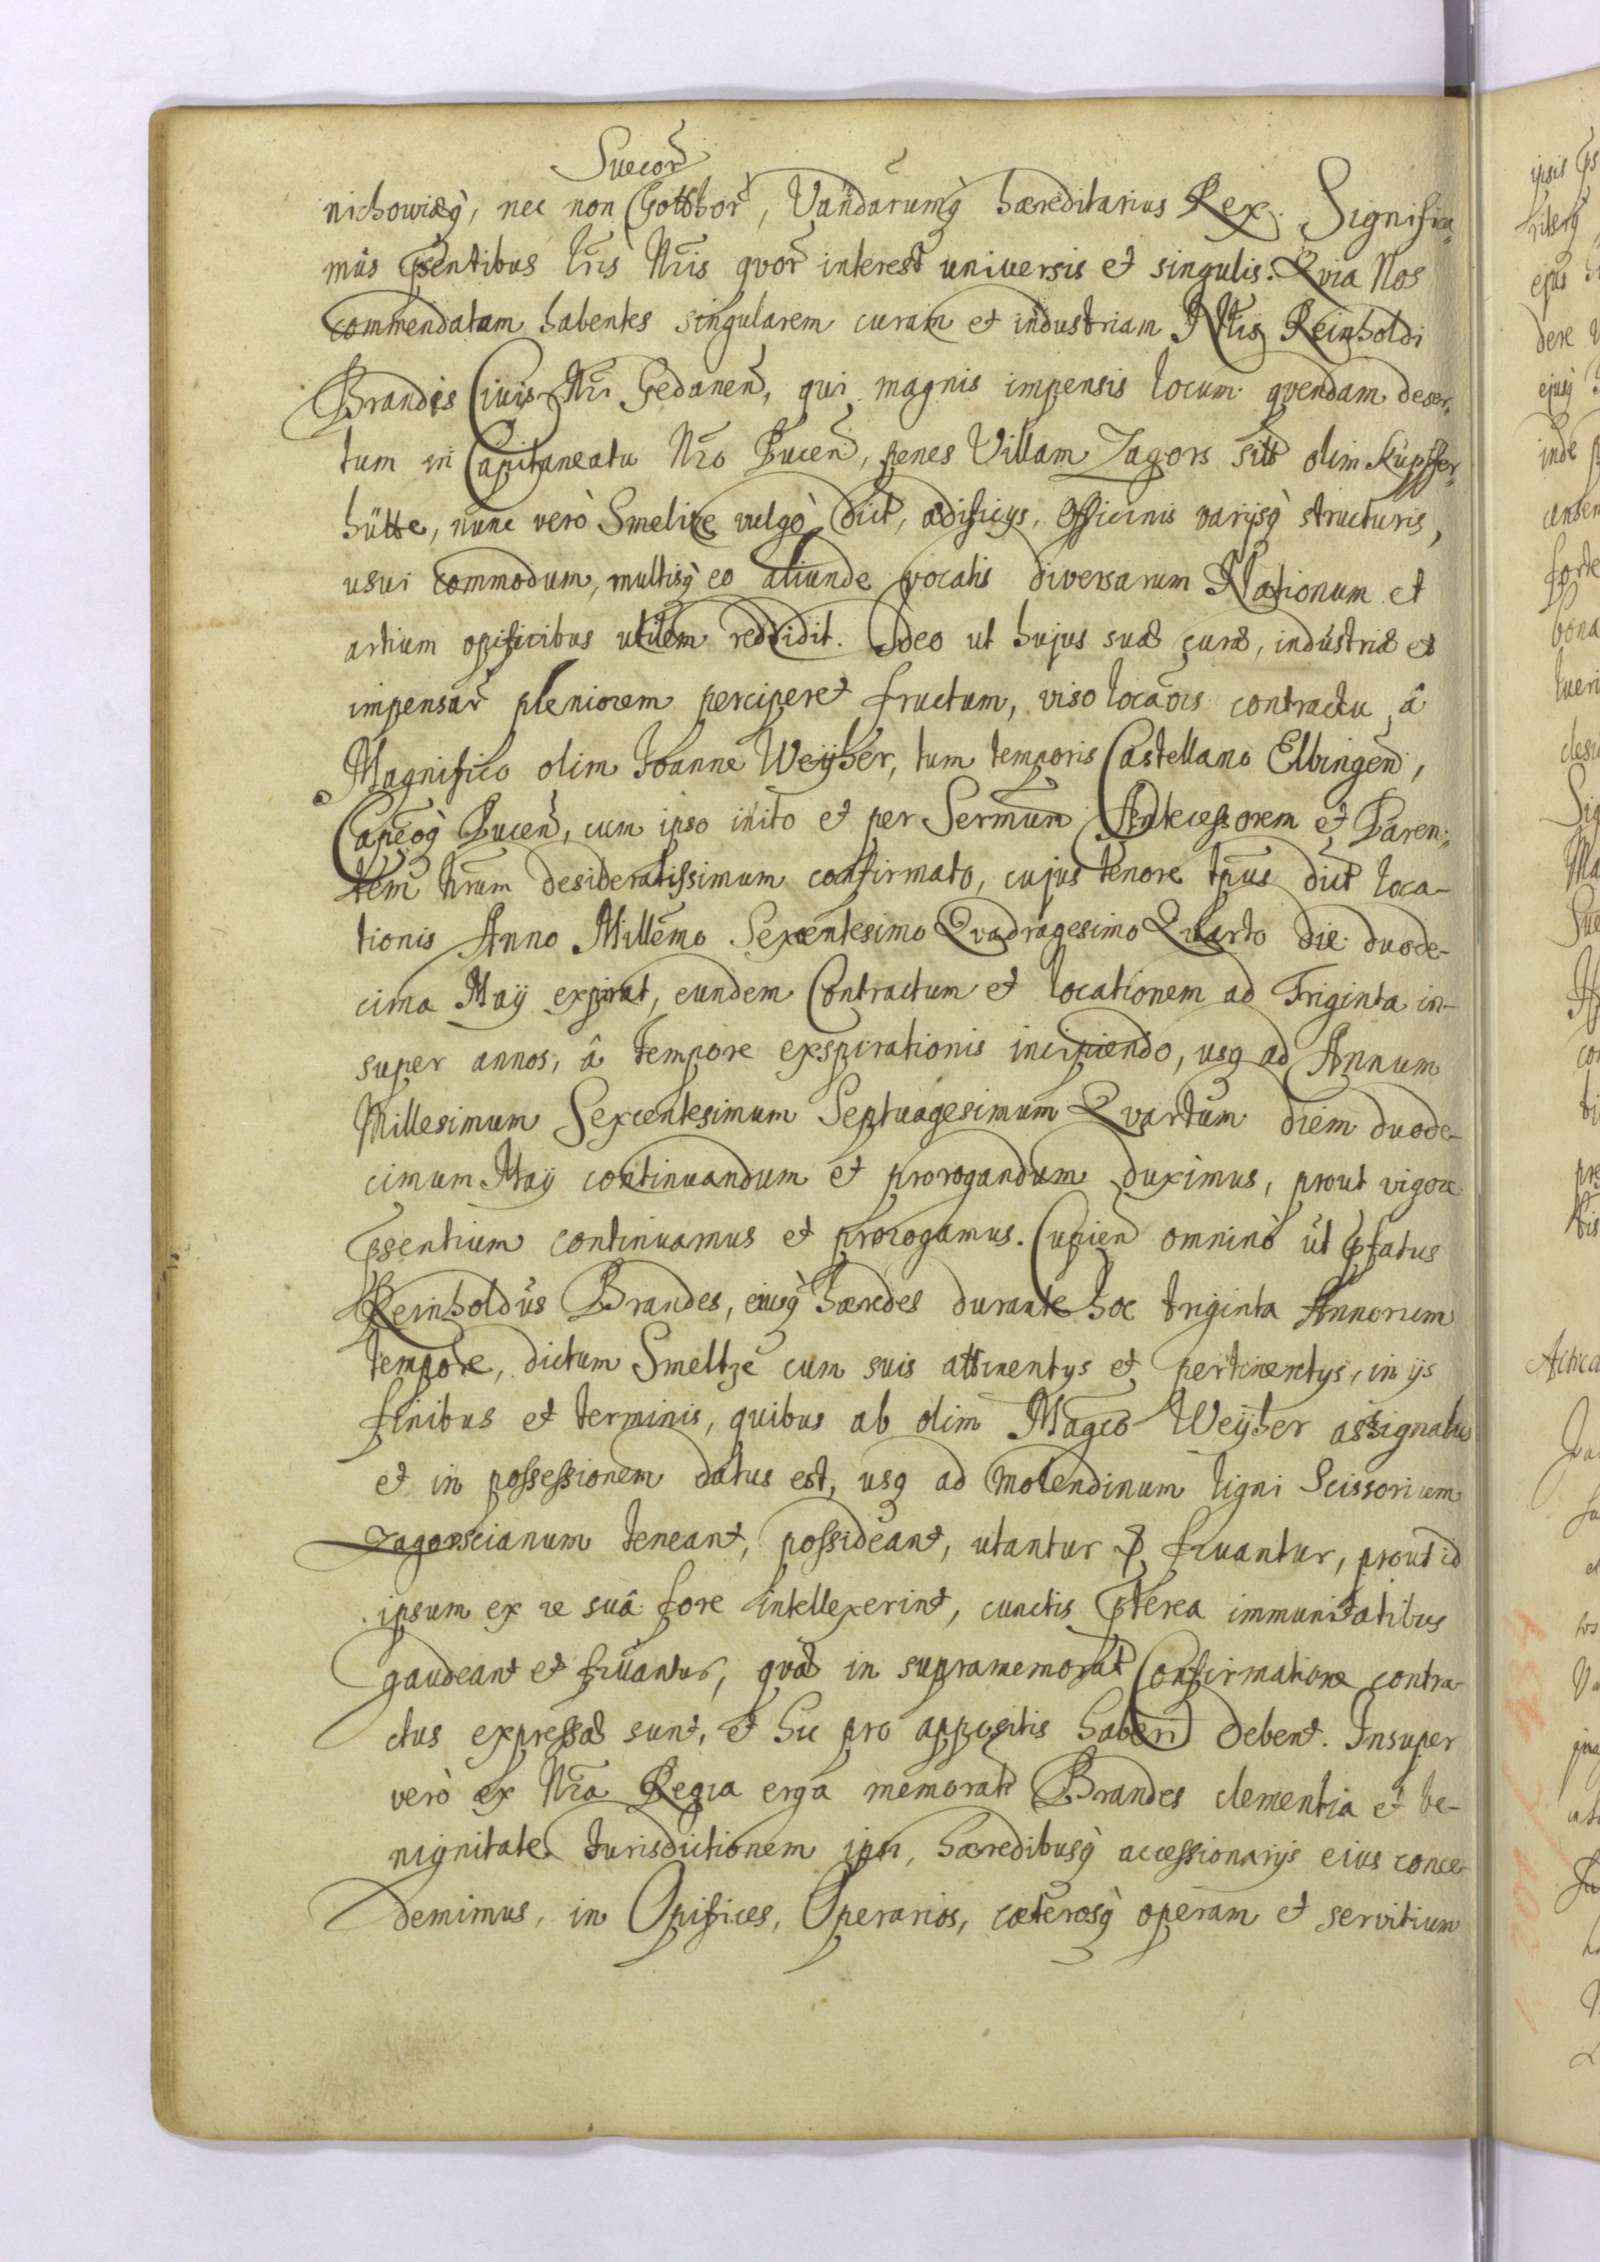 Suecor̃
nichowiæq̀, nec non Gotthor̃, Vandarumq̀ hæreditarius Rex. Significa-
mus p̃sentibus Lr̃is Nr̃is qvor̃ interest universis et singulis. Qvia Nos
commendatam habentes singularem curam et industriam Nblis Reinholdi
Brandes Civis Nr̃i Gedanen̄, qui magnis impensis locum qvendam deser-
tum in Capitaneatu Nr̃o Pucen̄, penes Villam Zagors sitt olim Kupffer-
hütte, nunc verò Smeltze vulgò dict, ædificijs, officinis varijsq̀ structuris,
usui commodum, multisq̀ eo aliunde vocatis diversarum Nationum et
artium opificibus utilem reddidit. Ideo ut hujus suæ curæ, industriæ et
impensar̃ pleniorem perciperet fructum, viso locaõis contractu â
Magnifico olim Joanne Weijher, tum temporis Castellano Elbingen̄,
Capeoq̀ Pucen̄, cum ipso inito et per Sermum Antecessorem et Paren-
tem Nr̃um desideratissimum confirmato, cujus tenore tp̃us dict loca-
tionis Anno Millemo Sexcentesimo Qvadragesimo Qvarto die duode-
cima Maij expirat, eundem Contractum et locationem ad Triginta in-
super annos, â tempore exspirationis incipiendo, usq ad Annum
Millesimum Sexcentesimum Septuagesimum Qvartum diem duode-
cimum Maij continuandum et prorogandum duximus, prout vigore
p̃sentium continuamus et prorogamus. Cupien̄ omninò ut p̃fatus
Reinholdus Brandes, eiusq̀ hæredes durante hoc triginta Annorum
tempore, dictum Smeltze cum suis attinentijs et pertinentijs, in ijs
finibus et terminis, quibus ab olim Magco Weijher assignatus
et in possessionem datus est, usq ad Molendinum ligni Scissorium
Zagorscianum teneant, possideant, utantur & fruantur, prout id
ipsum ex re suâ fore intellexerint, cunctis p̃terea immunitatibus
gaudeant et fruantur, qvæ in supramemorat Confirmatione contra-
ctus expressæ sunt, et hic pro appositis haberi debent. Insuper
verò ex Nr̃a Regia erga memorati Brandes clementia et be-
nignitate Jurisdictionem ipsi, hæredibusq̀ accessionarijs eius conce-
demimus, in Opifices, Operarios, cæterosq̀ operam et servitium